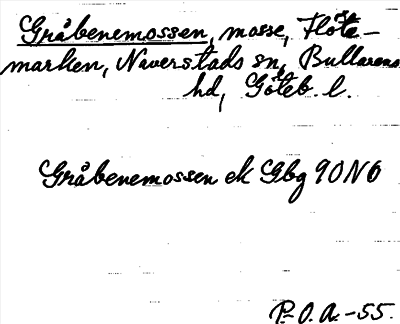 Gråbenemossen, mosse, Flöte-
marken, Naverstads sn, Bullarens
hd, Göteb. l.
Gråbenemossen ek Gbg 90 N 6
P.O.A.-55.